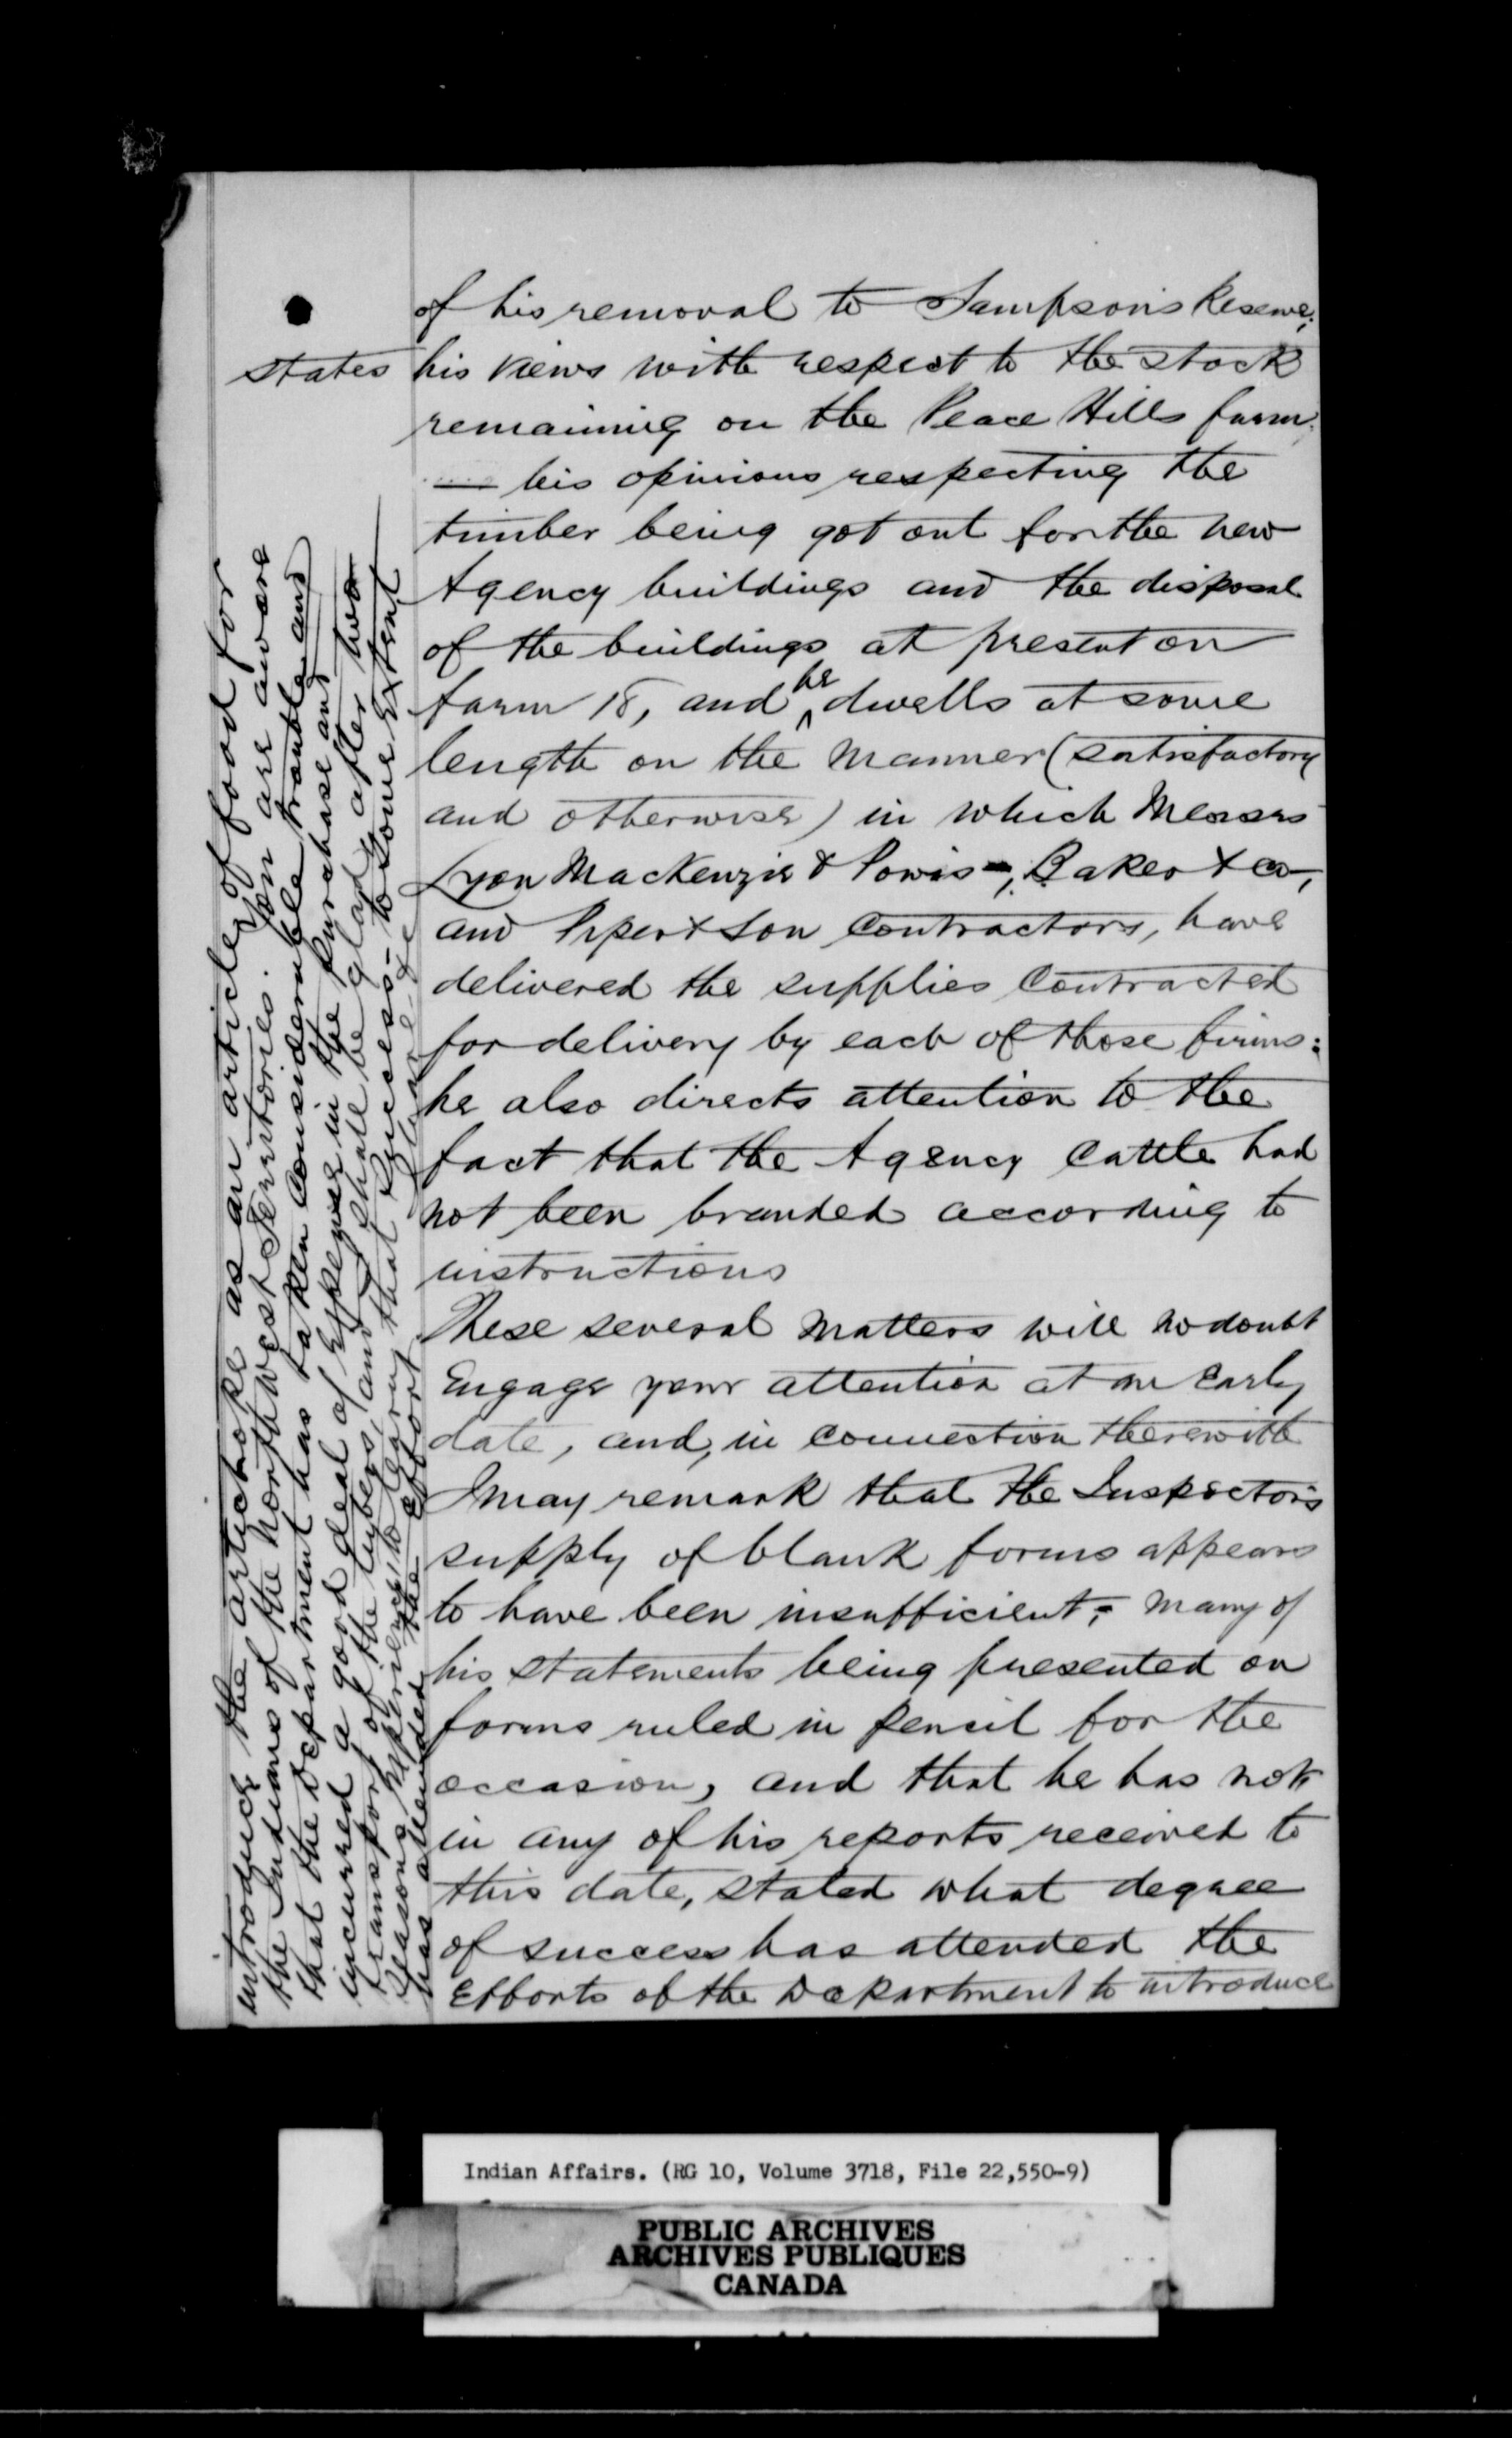 of his removal to Sampson's Reserve;
states his views with respect to the stock
remaining on the Peace Hills farm;
— his opinions respecting the
timber being got out for the new
Agency buildings and the disposal
of the buildings at present on
farm 18, and he dwells at some
length on the manner (satisfactory
and otherwise) in which Messrs
Lyon MacKenzie & Powis -; Baker & Co,
and Piper & Son contractors, have
delivered the supplies contracted
for delivery by each of those firms:
he also directs attention to the
fact that the Agency cattle had
not been branded according to
instructions
These several matters will no doubt
engage your attention at an early
date, and, in connection therewith
I may remark that the Inspector's
supply of blank forms appears
to have been insufficient; many of
his statements being presented on
forms ruled in pencil for the
occasion, and that he has not
in any of his reports received to
this date, stated what degree
of success has attended the
efforts of the Department to introduce
introduce the artichoke as an article of food for
the Indians of the Northwest Territories. You are aware
that the Department has taken considerable trouble and
incurred a good deal of expense in the purchase and
transport of the tubers, and I shall be glad after two
seasons experience to learn that success - to some extent
has attended the effort.
Indian Affairs. (RG 10, Volume 3718, File 22,550-9)
PUBLIC ARCHIVES
ARCHIVES PUBLIQUES
CANADA